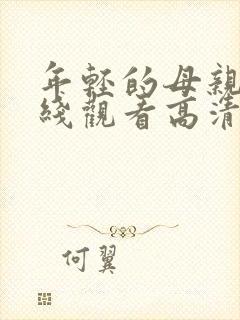 年輕的母親
綫觀看高清
何翼